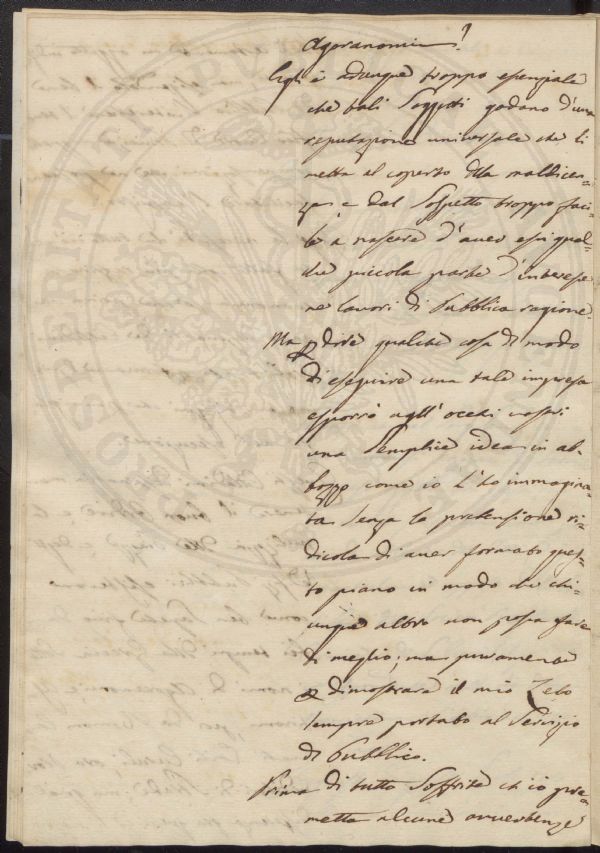 Agoranomia?
Egli è adunque troppo essenziale
che tali Soggetti godano d'una
reputazione universale che li
metta al coperto della maldicen=
za, e dal Sospetto troppo faci=
le a nascere d'aver essi qual=
che piccola parte d'interesse
ne lavori di Pubblica ragione.
Ma p dire qualche cosa di modo
di eseguire una tale impresa
esporrò agl'occhi vostri
una Semplice idea in ab=
bozzo come io l'ho immagina=
ta Senza la pretensione ri=
dicola di aver formato ques=
to piano in modo che chi=
unque altro non possa fare
di meglio; ma puramente
p dimostrare il mio Zelo
sempre portato al Servizio
di Pubblico.
Prima di tutto Soffrite ch'io pre=
metta alcune avvertenze